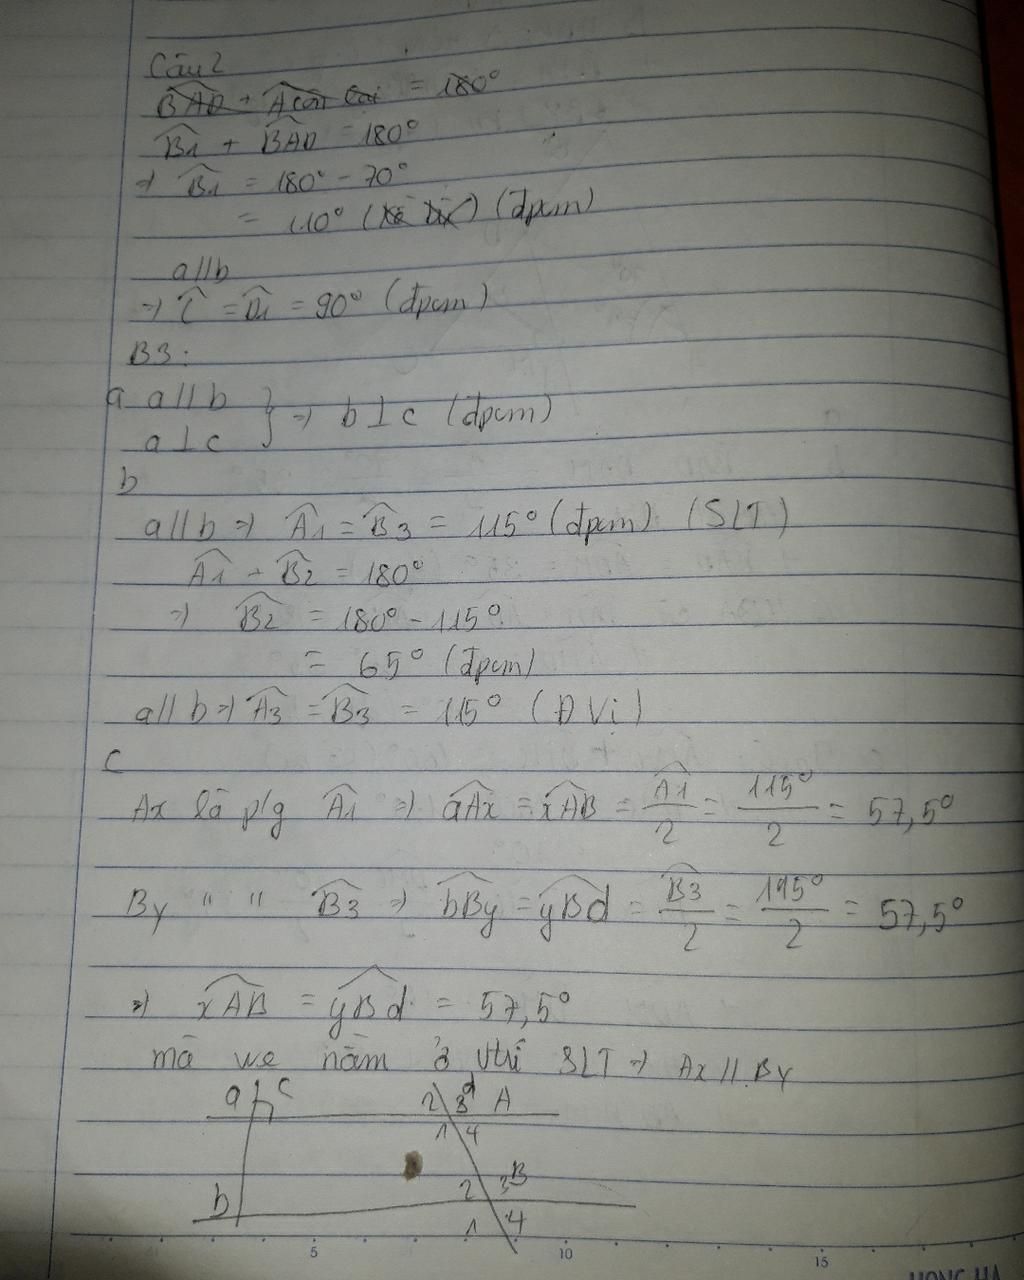 Câu 2
BAD + A còn lại = 180°
B1 + BAD = 180°
=> B1 = 180° - 70°
= 110° (kề bù) (đpcm)
a//b
=> C = D1 = 90° (đpcm)
B3:
a a//b
a⊥c } => b⊥c (đpcm)
b
a//b => A1 = B3 = 115° (đpcm) (SLT)
A1 + B2 = 180°
=> B2 = 180° - 115°
= 65° (đpcm)
a//b => A3 = B3 = 115° (ĐVi)
c
Ax là p/g A1 => aAx = xAB = A1/2 = 115°/2 = 57,5°
By " " B3 => bBy = yBd = B3/2 = 115°/2 = 57,5°
=> xAB = yBd = 57,5°
mà nằm ở vtrí SLT => Ax // By
a c 2 3 d A
1 4
2 3 B
b
1 4
5 10 15
HONG HA